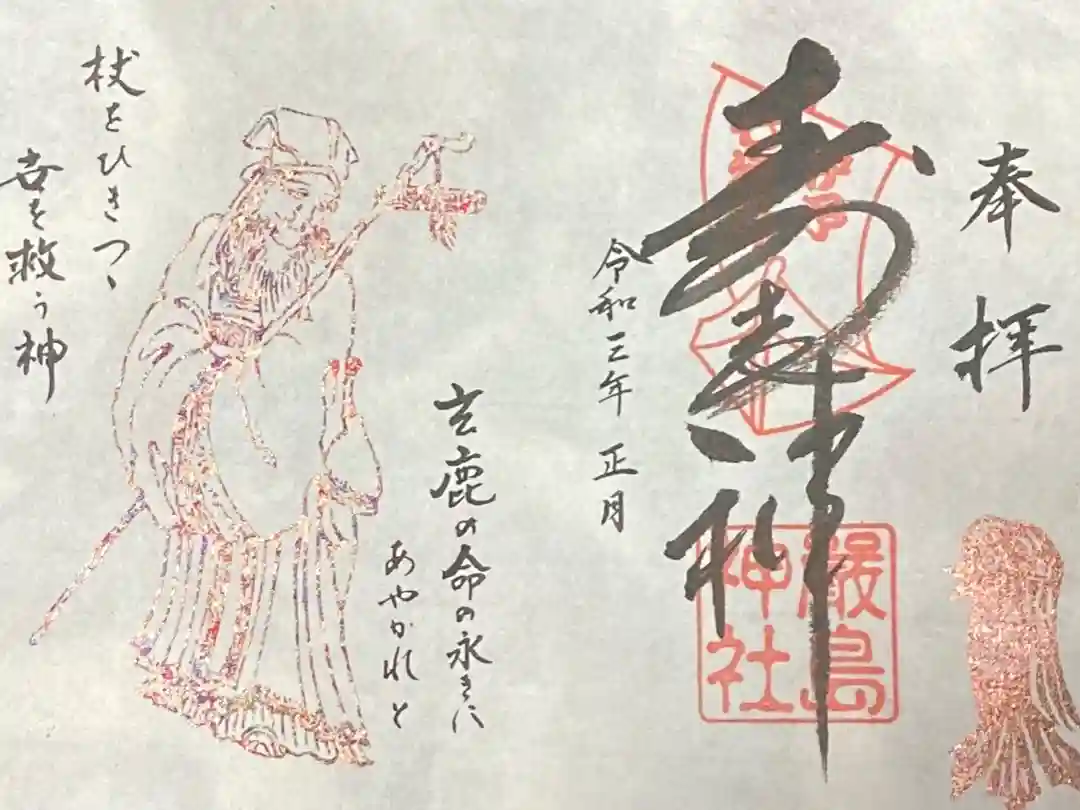 奉拝
寿老神
嚴島
神社
令和三年 正月
玄鹿の命の永きに
あやかれと
杖をひきつゝ
吾を救う神